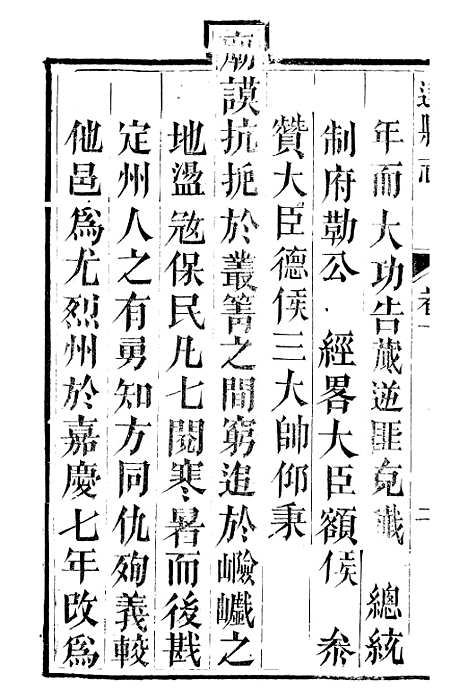 達縣志 卷 二
年而大功告蕆逆匪克殲 總統
制府勒公 經畧大臣額侯 叅
贊大臣德侯三大帥仰秉
廟謨抗扼於叢箐之間窮追於巘巇之
地盪寇保民凡七閱寒暑而後戡
定州人之有勇知方同仇殉義較
他邑爲尤烈州於嘉慶七年改爲